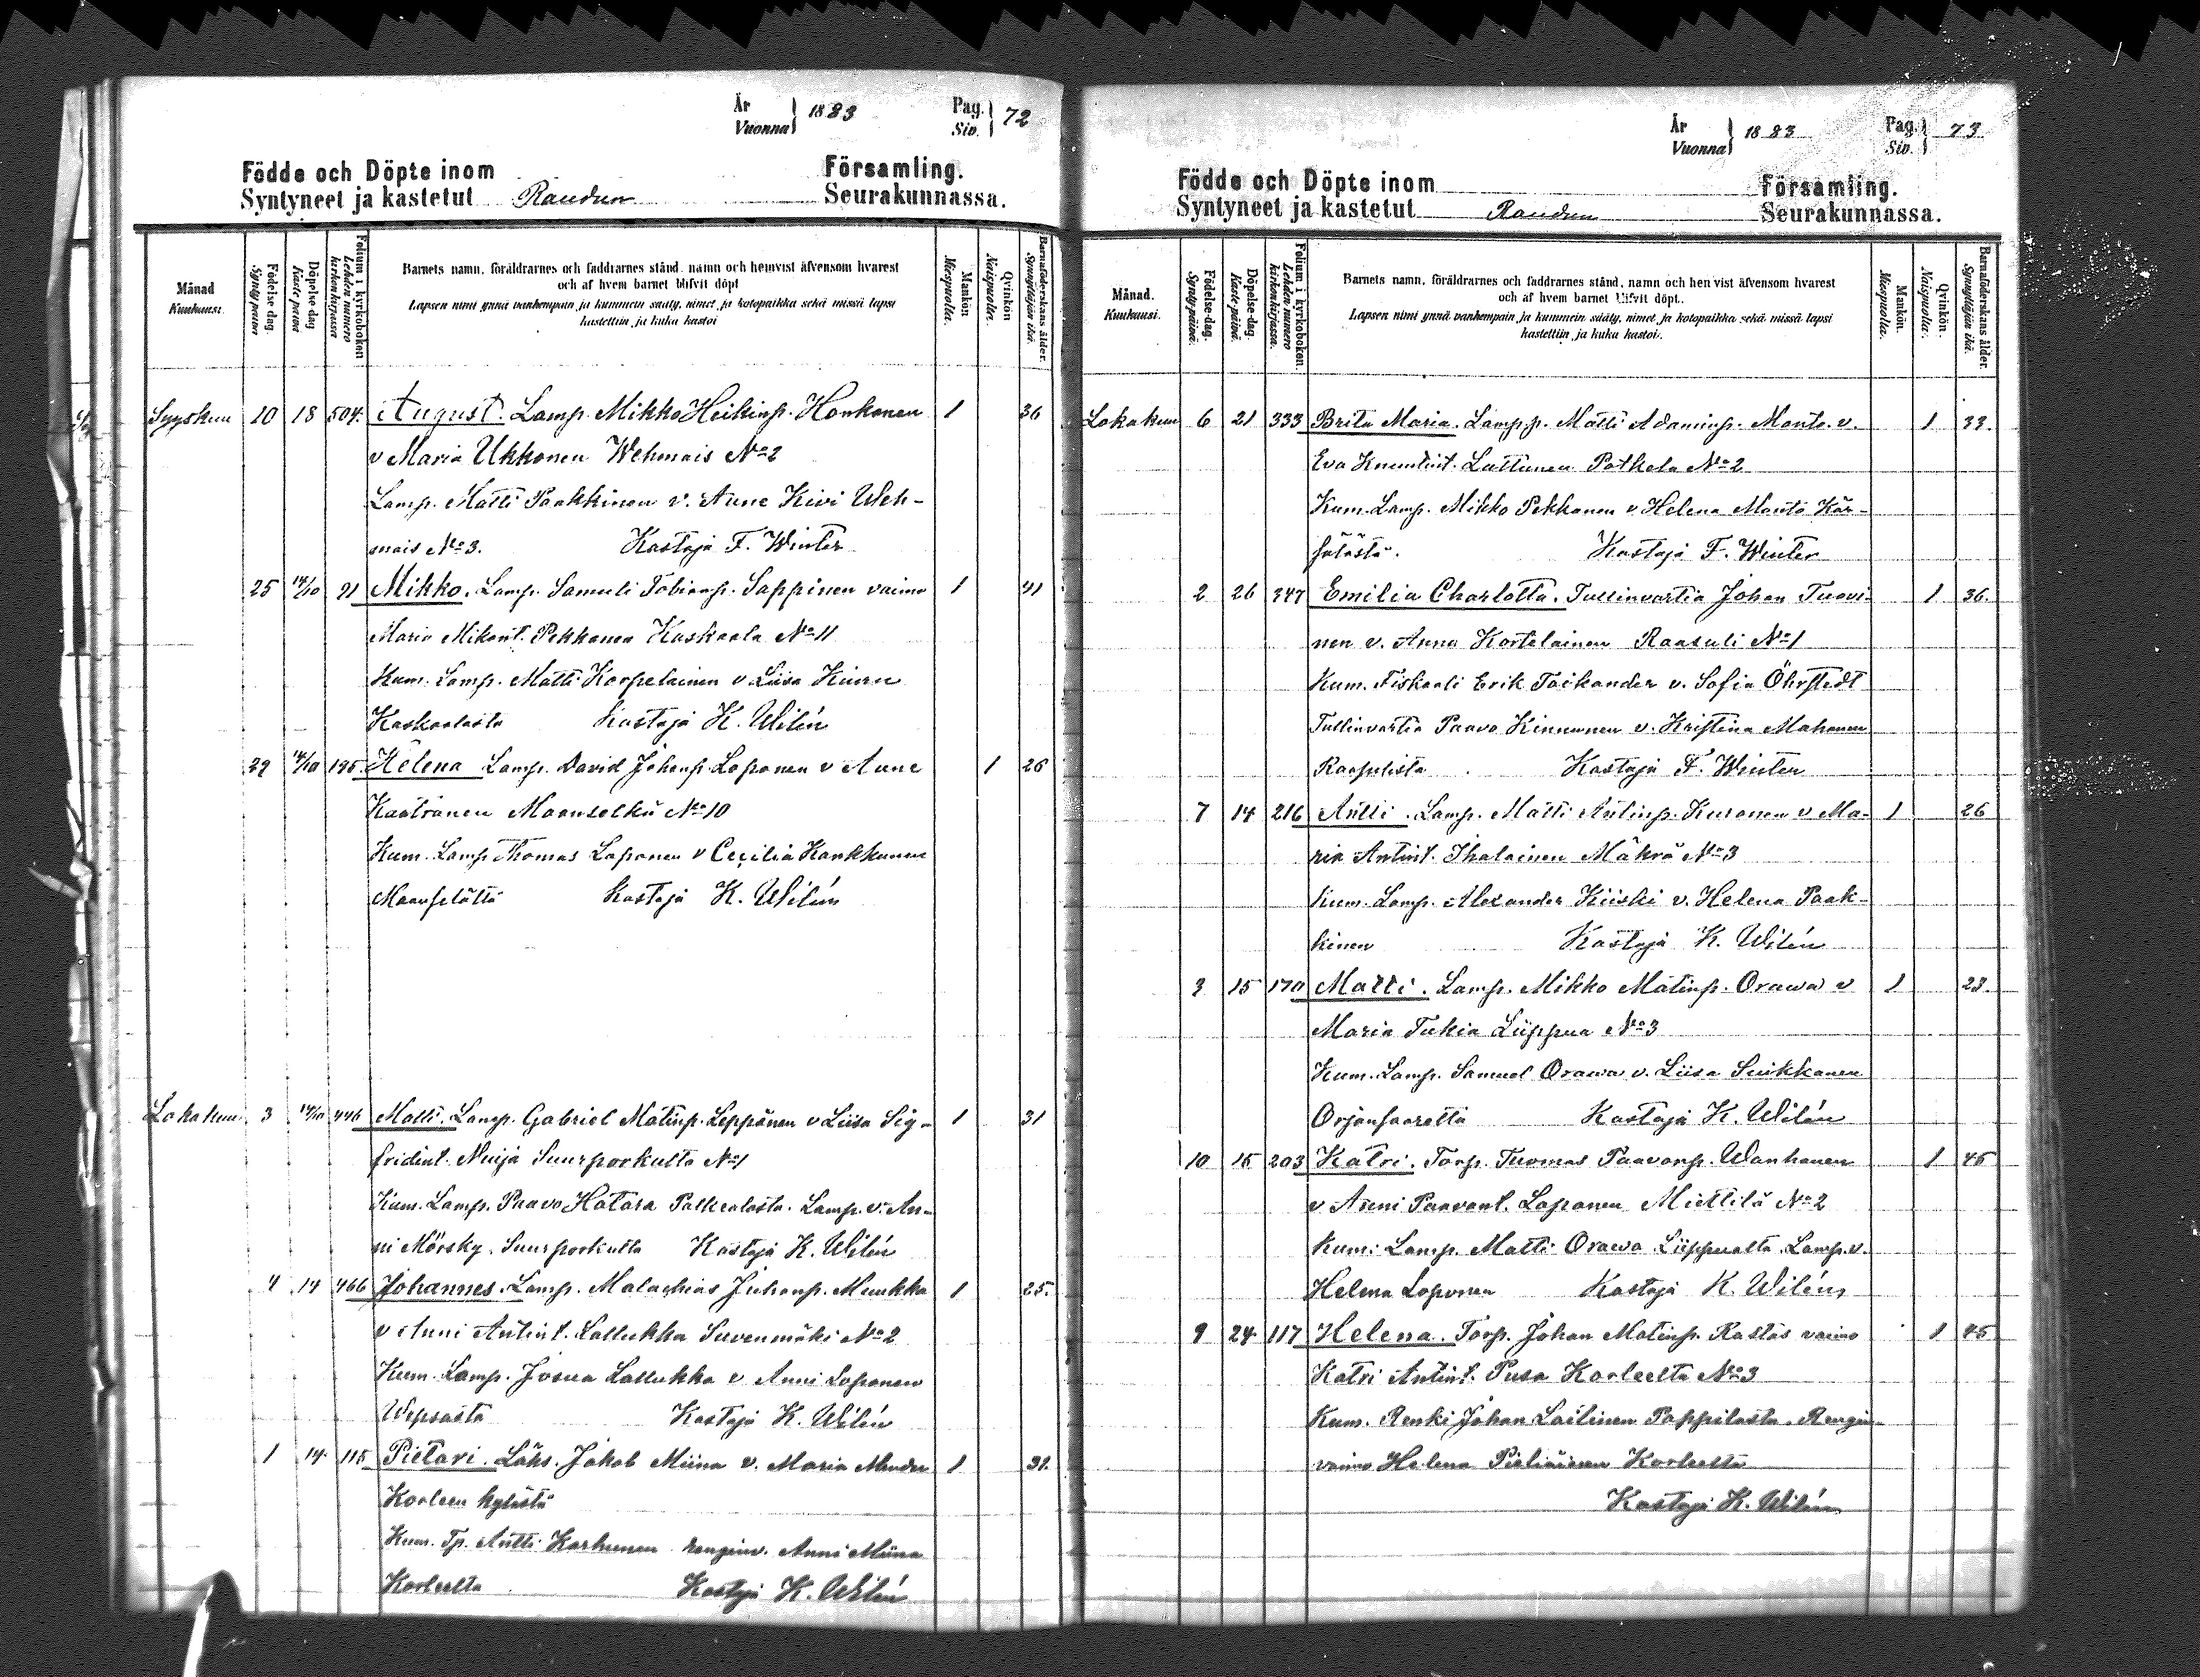 År
Vuonna 1883 Pag.
Siv. 72
Födde och Döpte inom Församling.
Syntyneet ja kastetut Raudun Seurakunnassa.
Månad
Kuukausi.
Födelse dag.
Synty päivä
Döpelse dag
Kaste päivä
Folium i kyrkoboken
Lehden numero kirkonkirjassa
Barnets namn, föräldrarnes och faddrarnes stånd, namn och hemvist äfvensom hvarest
och af hvem barnet blifvit döpt
Lapsen nimi ynnä vanhempain ja kummein sääty, nimet ja kotopaikka sekä missä lapsi
kastettiin ja kuka kastoi
Mankön
Miespuolia.
Qvinkön
Naispuolia.
Barnaföderskans ålder.
Synnyttäjän ikä.
Syyskuu 10 18 504. August. Lamp. Mikko Heikinp. Honkanen 1 36
v Maria Ukkonen Wehmais No 2
Lamp. Matti Paakkinen v. Anne Kivi Weh-
mais No 3. Kastaja F. Winter
25 14/10 91 Mikko. Lamp. Samuli Tobianp. Sappinen vaimo 1 41
Maria Mikont. Pekkanen Kaskaala No 11
Kum. Lamp. Matti Korpelainen v Liisa Kiuru
Kaskaalasta Kastaja K. Wilén
29 14/10 195. Helena Lamp. David Johanp. Loponen v Anne 1 26
Kaatranen Maanselkä No 10
Kum. Lamp. Thomas Loponen v Cecilia Kankkunen
Maanselältä Kastaja K. Wilén
Lokakuu 3 14/10 446 Matti. Lamp. Gabriel Matinp. Leppänen v Liisa Sig- 1 31
fridint. Nuija Suurporkulta No 1
Kum. Lamp. Paavo Hatara Palkealasta. Lamp. v. An-
ni Mörsky. Suurporkulta Kastaja K. Wilén
4 14 466 Johannes. Lamp. Malachias Juhanp. Muukka 1 25.
v Anni Antint. Lallukka Suvenmäki No 2
Kum. Lamp. Josua Lallukka v Anni Loponen
Wepsästä Kastaja K. Wilén
1 14. 115 Pietari. Läks. Jakob Miina v. Maria Mender 1 31.
Korleen kylästä
Kum. Tp. Antti Karhunen renginv. Anni Miina
Korleelta Kastaja K. Wilén
År
Vuonna 1883 Pag.
Siv. 73
Födde och Döpte inom Församling.
Syntyneet ja kastetut Raudun Seurakunnassa.
Månad.
Kuukausi.
Födelse-dag.
Synty-päivä.
Döpelse-dag.
Kaste-päivä.
Folium i kyrkoboken.
Lehden numero kirkonkirjassa.
Barnets namn, föräldrarnes och faddrarnes stånd, namn och hemvist äfvensom hvarest
och af hvem barnet blifvit döpt.
Lapsen nimi ynnä vanhempain ja kummein sääty, nimet ja kotopaikka sekä missä lapsi
kastettiin ja kuka kastoi.
Mankön.
Miespuolia.
Qvinkön.
Naispuolia.
Barnaföderskans ålder.
Synnyttäjän ikä.
Lokakuu 6 21 333 Brita Maria. Lampp. Matti Adaminp. Monto. v. 1 33.
Eva Knuutint. Lattunen Potkela No 2
Kum. Lamp. Mikko Pekkanen v Helena Monto Kär-
sälästä. Kastaja F. Winter
2 26 347 Emilia Charlotta. Tullinvartia Johan Tuovi- 1 36.
nen v. Anna Kortelainen Raasuli No 1
Kum. Fiskaali Erik Toikander v. Sofia Öhrstedt
Tullinvartia Paavo Kinnunen v. Kristina Mahonen
Raasulista Kastaja F. Winter
7 14 216 Antti. Lamp. Matti Antinp. Kuronen v Ma- 1 26
ria Antint. Ihalainen Mäkrä No 3
Kum. Lamp. Alexander Kiiski v. Helena Paak-
kinen Kastaja K. Wilén
3 15 170 Matti. Lamp. Mikko Matinp. Orawa v 1 23.
Maria Tukia Liippua No 3
Kum. Lamp. Samuel Orawa v. Liisa Suikkanen
Orjansaarelta Kastaja K. Wilén
10 15 203 Katri. Torp. Tuomas Paavonp. Wanhanen 1 45
v Anni Paavont. Loponen Miettilä No 2
Kum: Lamp. Matti Orawa Liippualta. Lamp. v.
Helena Loponen Kastaja K. Wilén
9 24. 117 Helena. Torp. Johan Matinp. Rastas vaimo 1 45
Katri Antint. Pusa Korleelta No 3
Kum. Renki Johan Lailinen Pappilasta. Rengin-
vaimo Helena Pieliäinen Korleelta
Kastaja K. Wilén